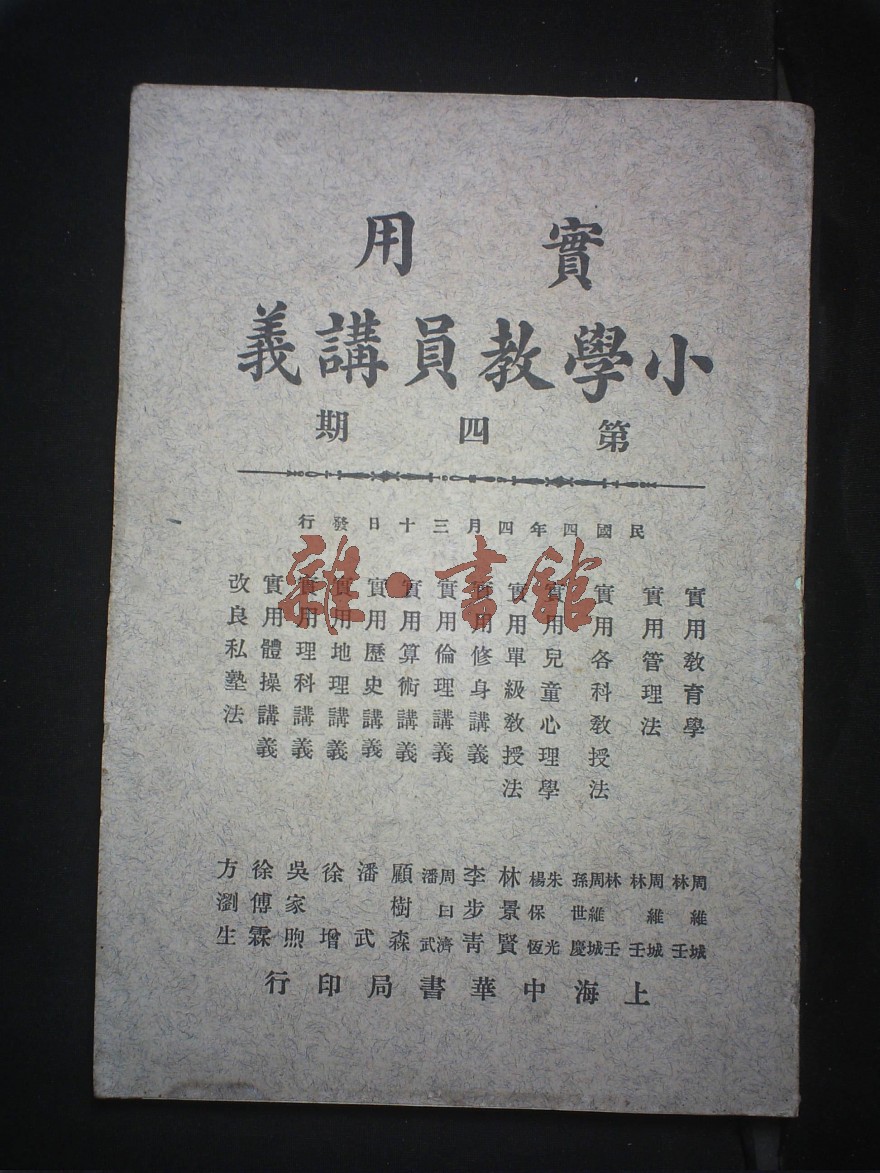 實用
小學教員講義
第四期
民國四年四月三十日發行
雜·書館
實用教育學
實用管理法
實用各科教授法
實用兒童心理學
實用單級教授法
實用修身講義
實用倫理講義
實用算術講義
實用歷史講義
實用地理講義
實用理科講義
實用體操講義
改良私塾法
周維城
林壬
周維城
林壬
林壬
周維城
孫世慶
朱光
楊保恆
林景賢
李步青
周日濟
潘武
顧樹森
潘武
徐增
吳家煦
徐傅霖
方瀏生
上海中華書局印行